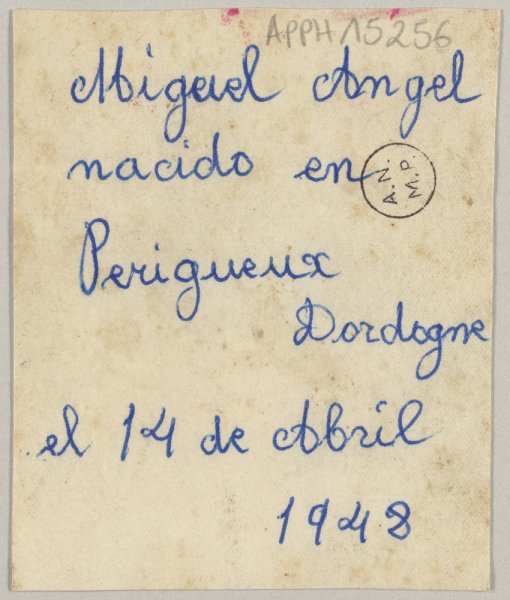 APPH15256
Miguel Angel
nacido en
A.N.
M.P.
Perigueux
Dordogne
el 14 de Abril
1948